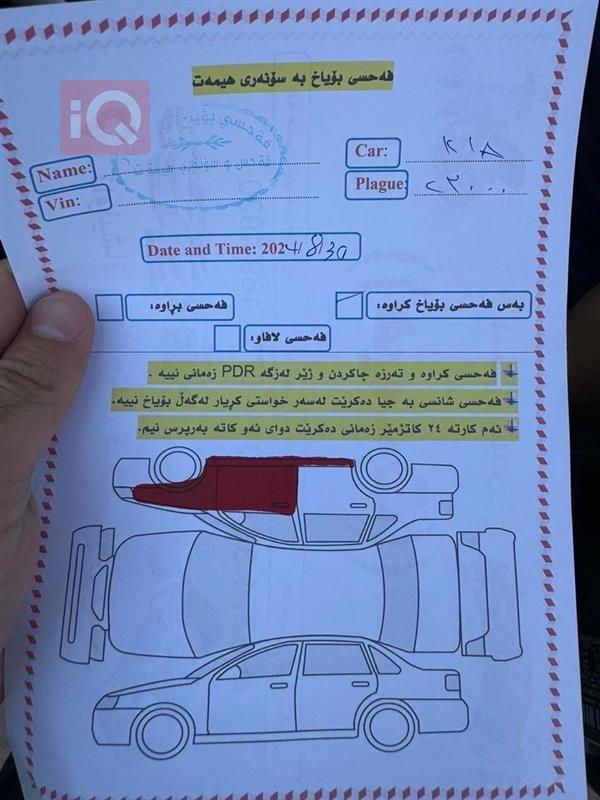 فەحسی بۆیاخ بە سۆنەری هیمەت
iQ
فەحسی بۆیاخ
فەحس و سۆنەری هیمەت
Name:
Car: KIA
Vin:
Plague: ٢٣٠٠٠
Date and Time: 2024/8/30
بەس فەحسی بۆیاخ کراوە:
فەحسی بڕاوە:
فەحسی لافاو:
فەحسی کراوە و تەرزە چاکردن و ژێر لەزگە PDR زەمانی نییە .
فەحسی شانسی بە جیا دەکرێت لەسەر خواستی کڕیار لەگەڵ بۆیاخ نییە.
ئەم کارتە ٢٤ کاتژمێر زەمانی دەکرێت دوای ئەو کاتە بەرپرس نیم.